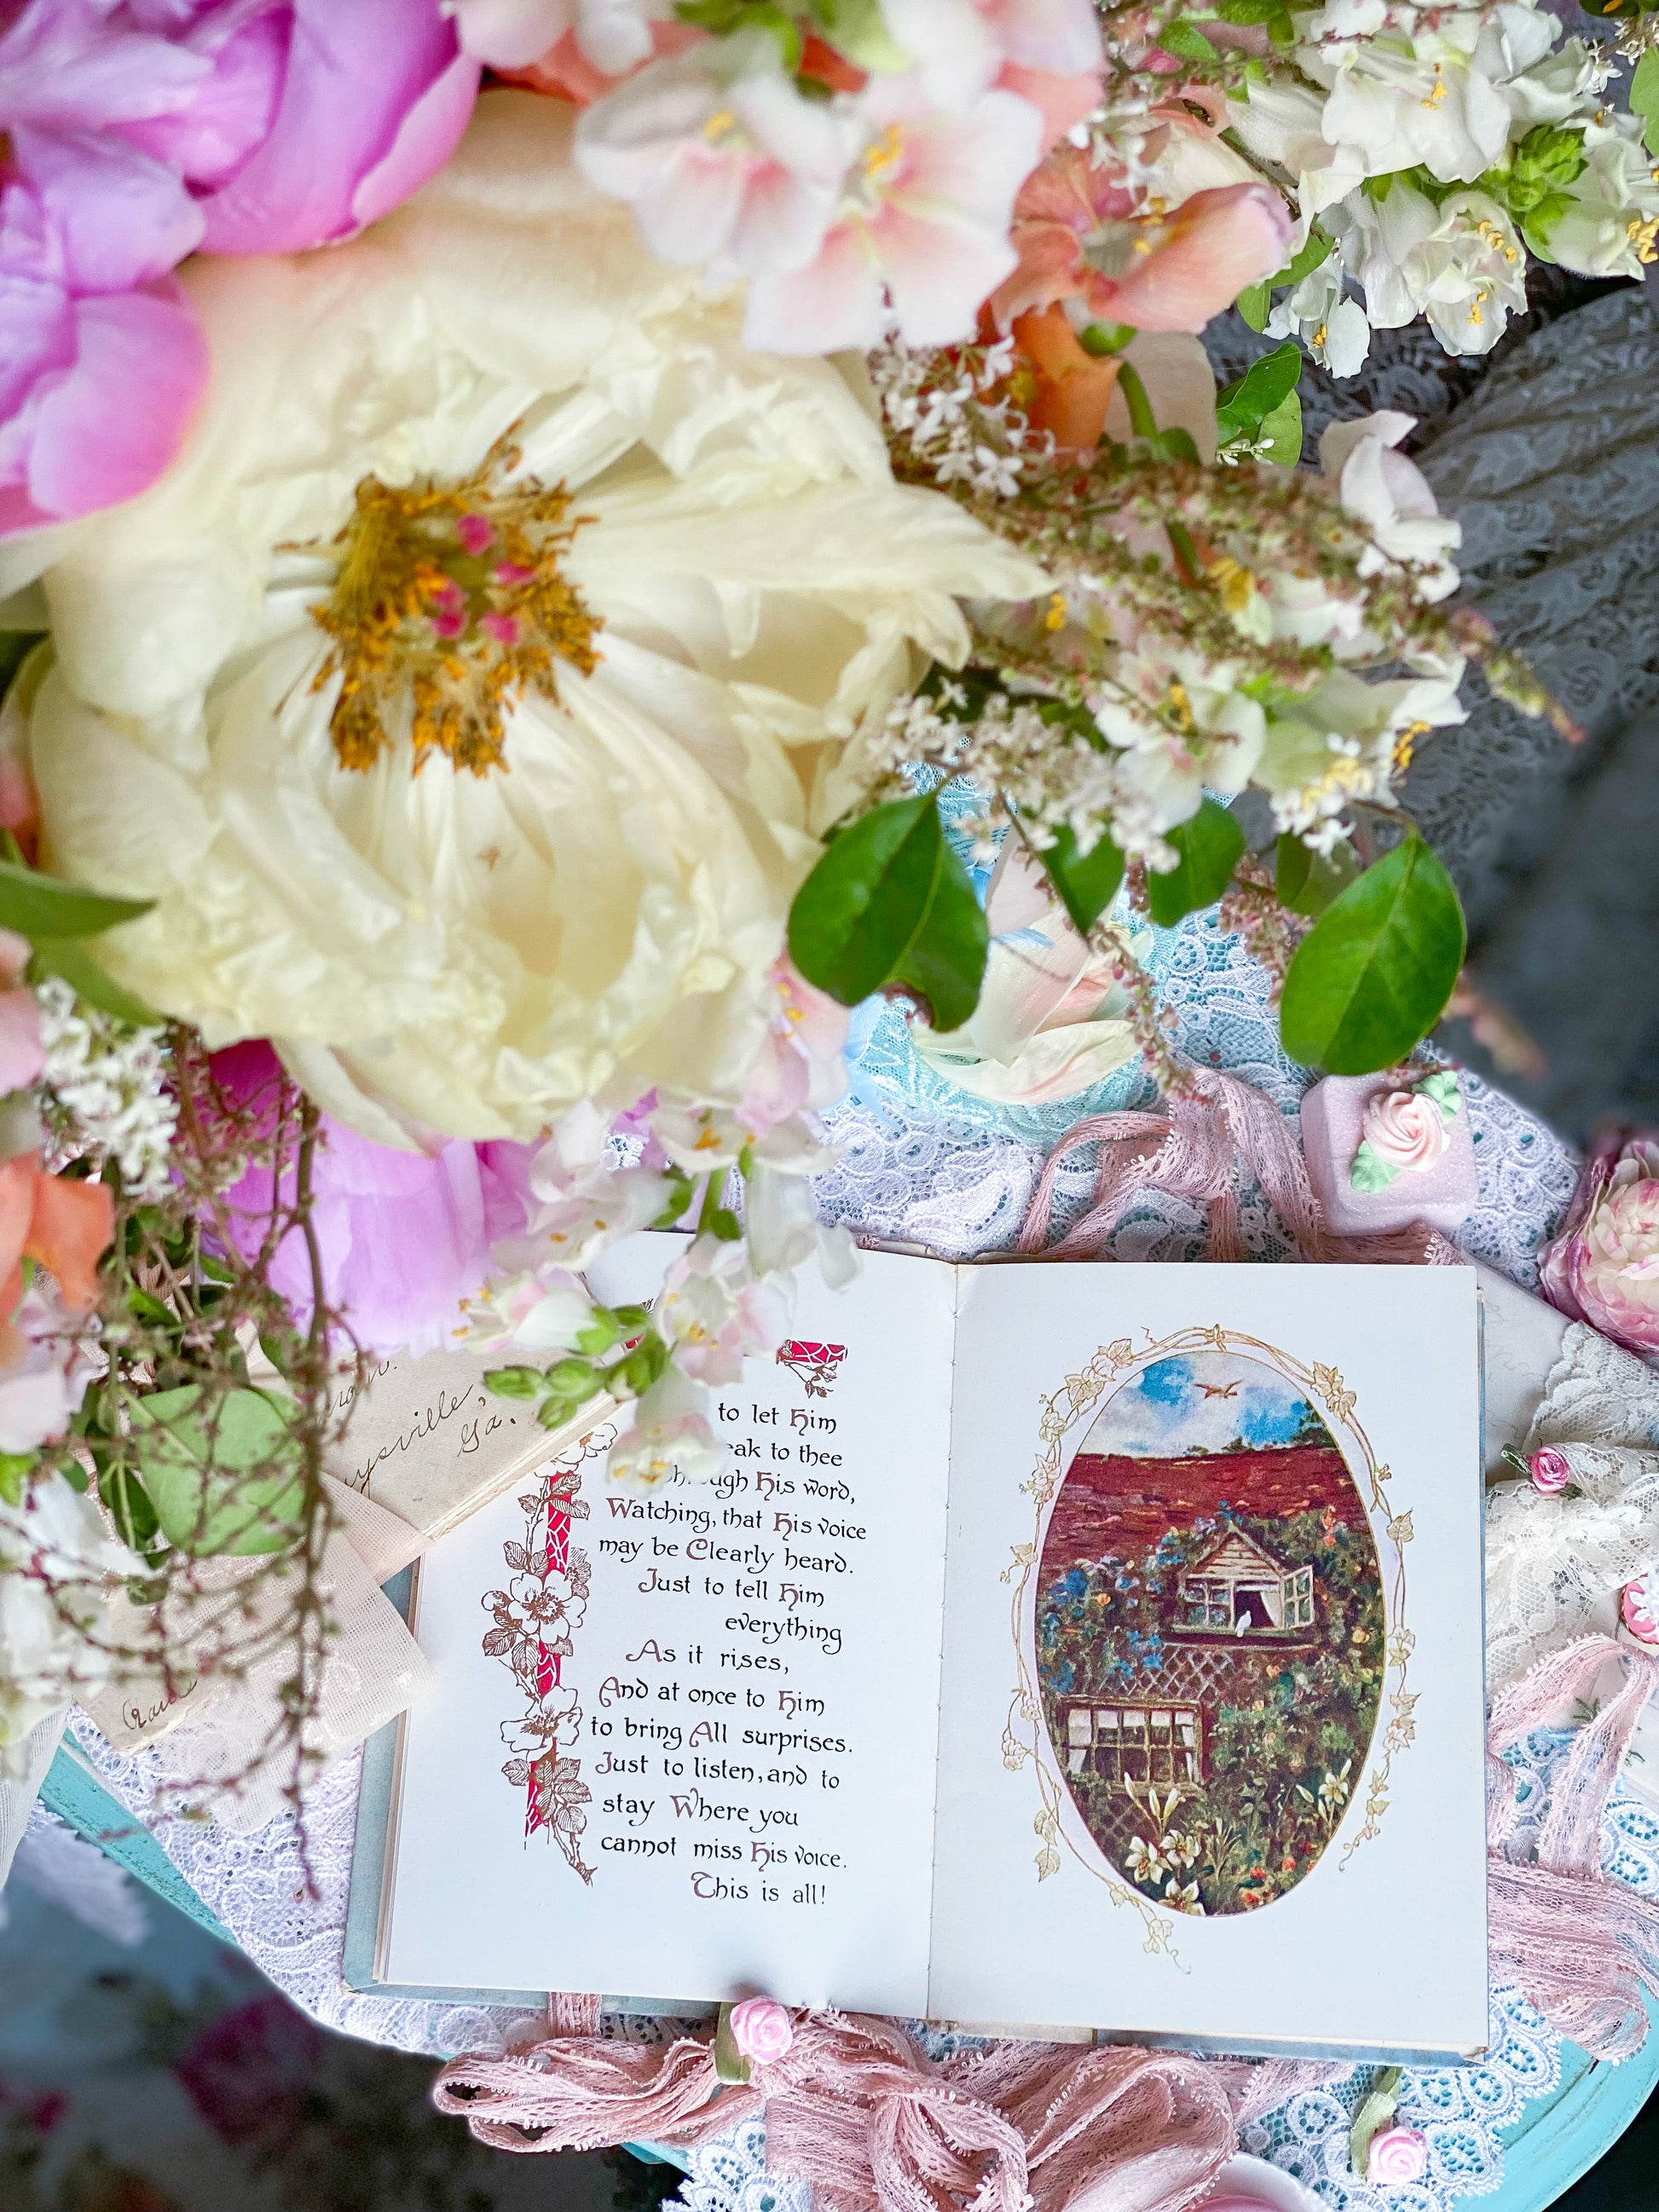 Ga.
to let Him
to thee
His word,
Watching, that His voice
may be Clearly heard.
Just to tell Him
everything
As it rises,
And at once to Him
to bring All surprises.
Just to listen, and to
stay Where you
cannot miss His voice.
This is all!